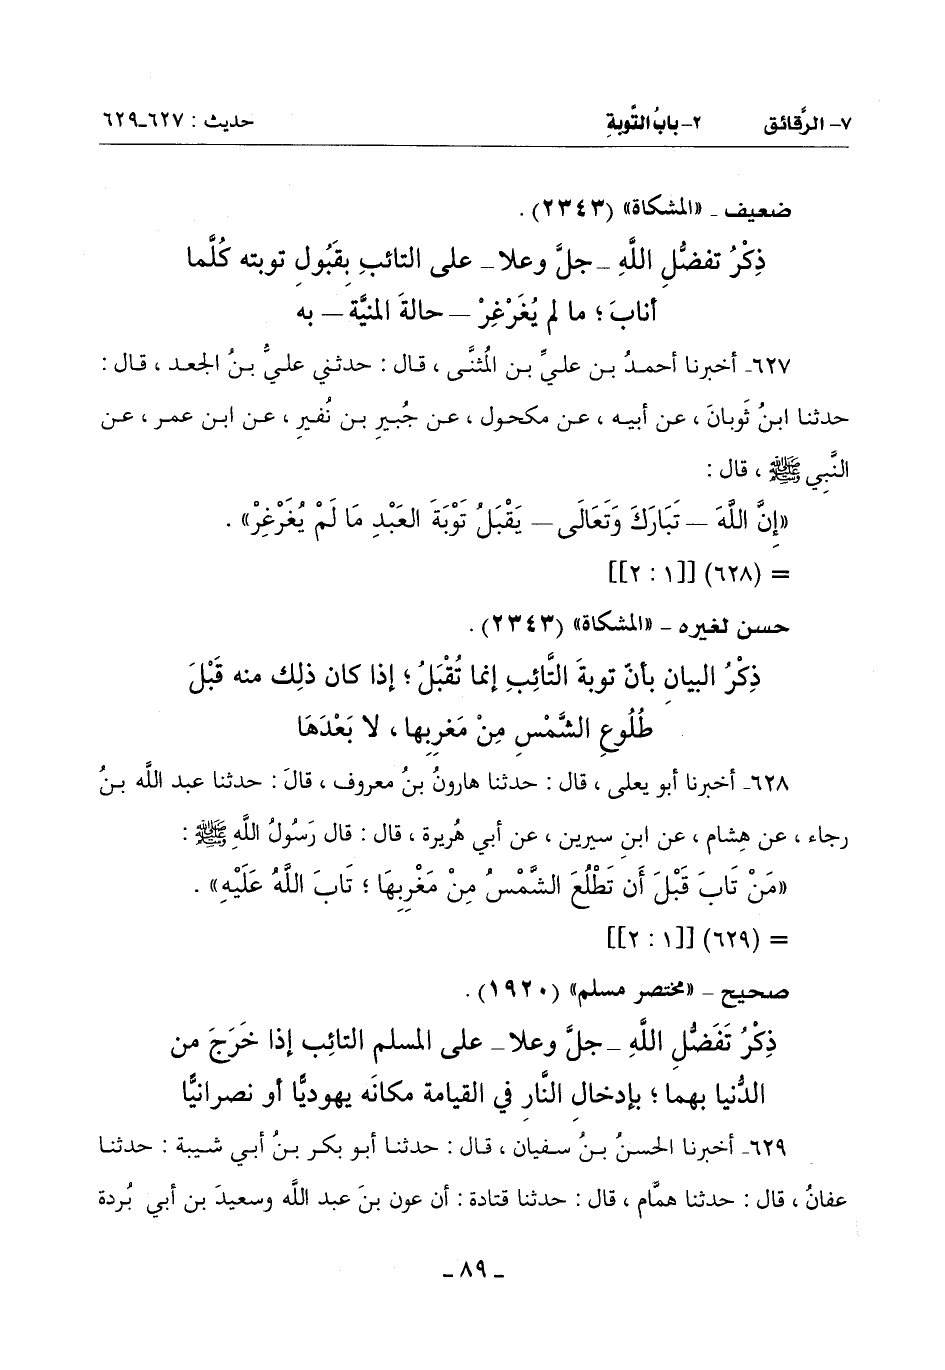 ٧- الرَّقائق ٢- بابُ التَّوبةِ حديث : ٦٢٧-٦٢٩
ضعيف - «المشكاة» (٢٣٤٣) .
ذِكْرُ تفضُّلِ اللَّهِ - جلَّ وعلا - على التائبِ بِقَبُولِ توبته كُلَّما
أنابَ ؛ ما لم يُغَرْغِرْ - حالةَ المنيَّة - به
٦٢٧- أخبرنا أحمدُ بن عليِّ بن المُثنَّى ، قال : حدثني عليُّ بنُ الجعد ، قال :
حدثنا ابنُ ثَوبانَ ، عن أبيه ، عن مكحول ، عن جُبيرِ بن نُفيرٍ ، عن ابن عمر ، عن
النَّبيِ ﷺ ، قال :
«إِنَّ اللَّهَ - تَبَارَكَ وَتَعَالَى - يَقْبَلُ تَوْبَةَ العَبْدِ مَا لَمْ يُغَرْغِرْ» .
= (٦٢٨) [[١ : ٢]]
حسن لغيره - «المشكاة» (٢٣٤٣) .
ذِكْرُ البيانِ بأنّ توبةَ التَّائِبِ إنما تُقْبَلُ ؛ إذا كان ذلِك منه قَبْلَ
طُلُوعِ الشَّمْسِ مِنْ مَغرِبِها ، لا بَعْدَهَا
٦٢٨- أخبرنا أبو يعلى ، قال : حدثنا هارونُ بنُ معروف ، قالَ : حدثنا عبد اللَّه بنُ
رجاء ، عن هِشام ، عن ابنِ سيرين ، عن أبي هُريرة ، قال : قال رَسُولُ اللَّهِ ﷺ :
«مَنْ تَابَ قَبْلَ أَن تَطْلُعَ الشَّمْسُ مِنْ مَغْرِبِهَا ؛ تَابَ اللَّهُ عَلَيْهِ» .
= (٦٢٩) [[١ : ٢]]
صحيح - «مختصر مسلم» (١٩٢٠) .
ذِكْرُ تَفَضُّلِ اللَّهِ - جلَّ وعلا - على المسلم التائِب إذا خَرَجَ من
الدُّنيا بهما ؛ بإدخالِ النَّار في القيامة مكانَه يهوديًّا أو نصرانيًّا
٦٢٩- أخبرنا الحسنُ بنُ سفيان ، قال : حدثنا أبو بكر بنُ أبي شيبة : حدثنا
عفانُ ، قال : حدثنا همَّام ، قال : حدثنا قتادة : أن عون بنَ عبد اللَّه وسعيدَ بن أبي بُردة
- ٨٩ -